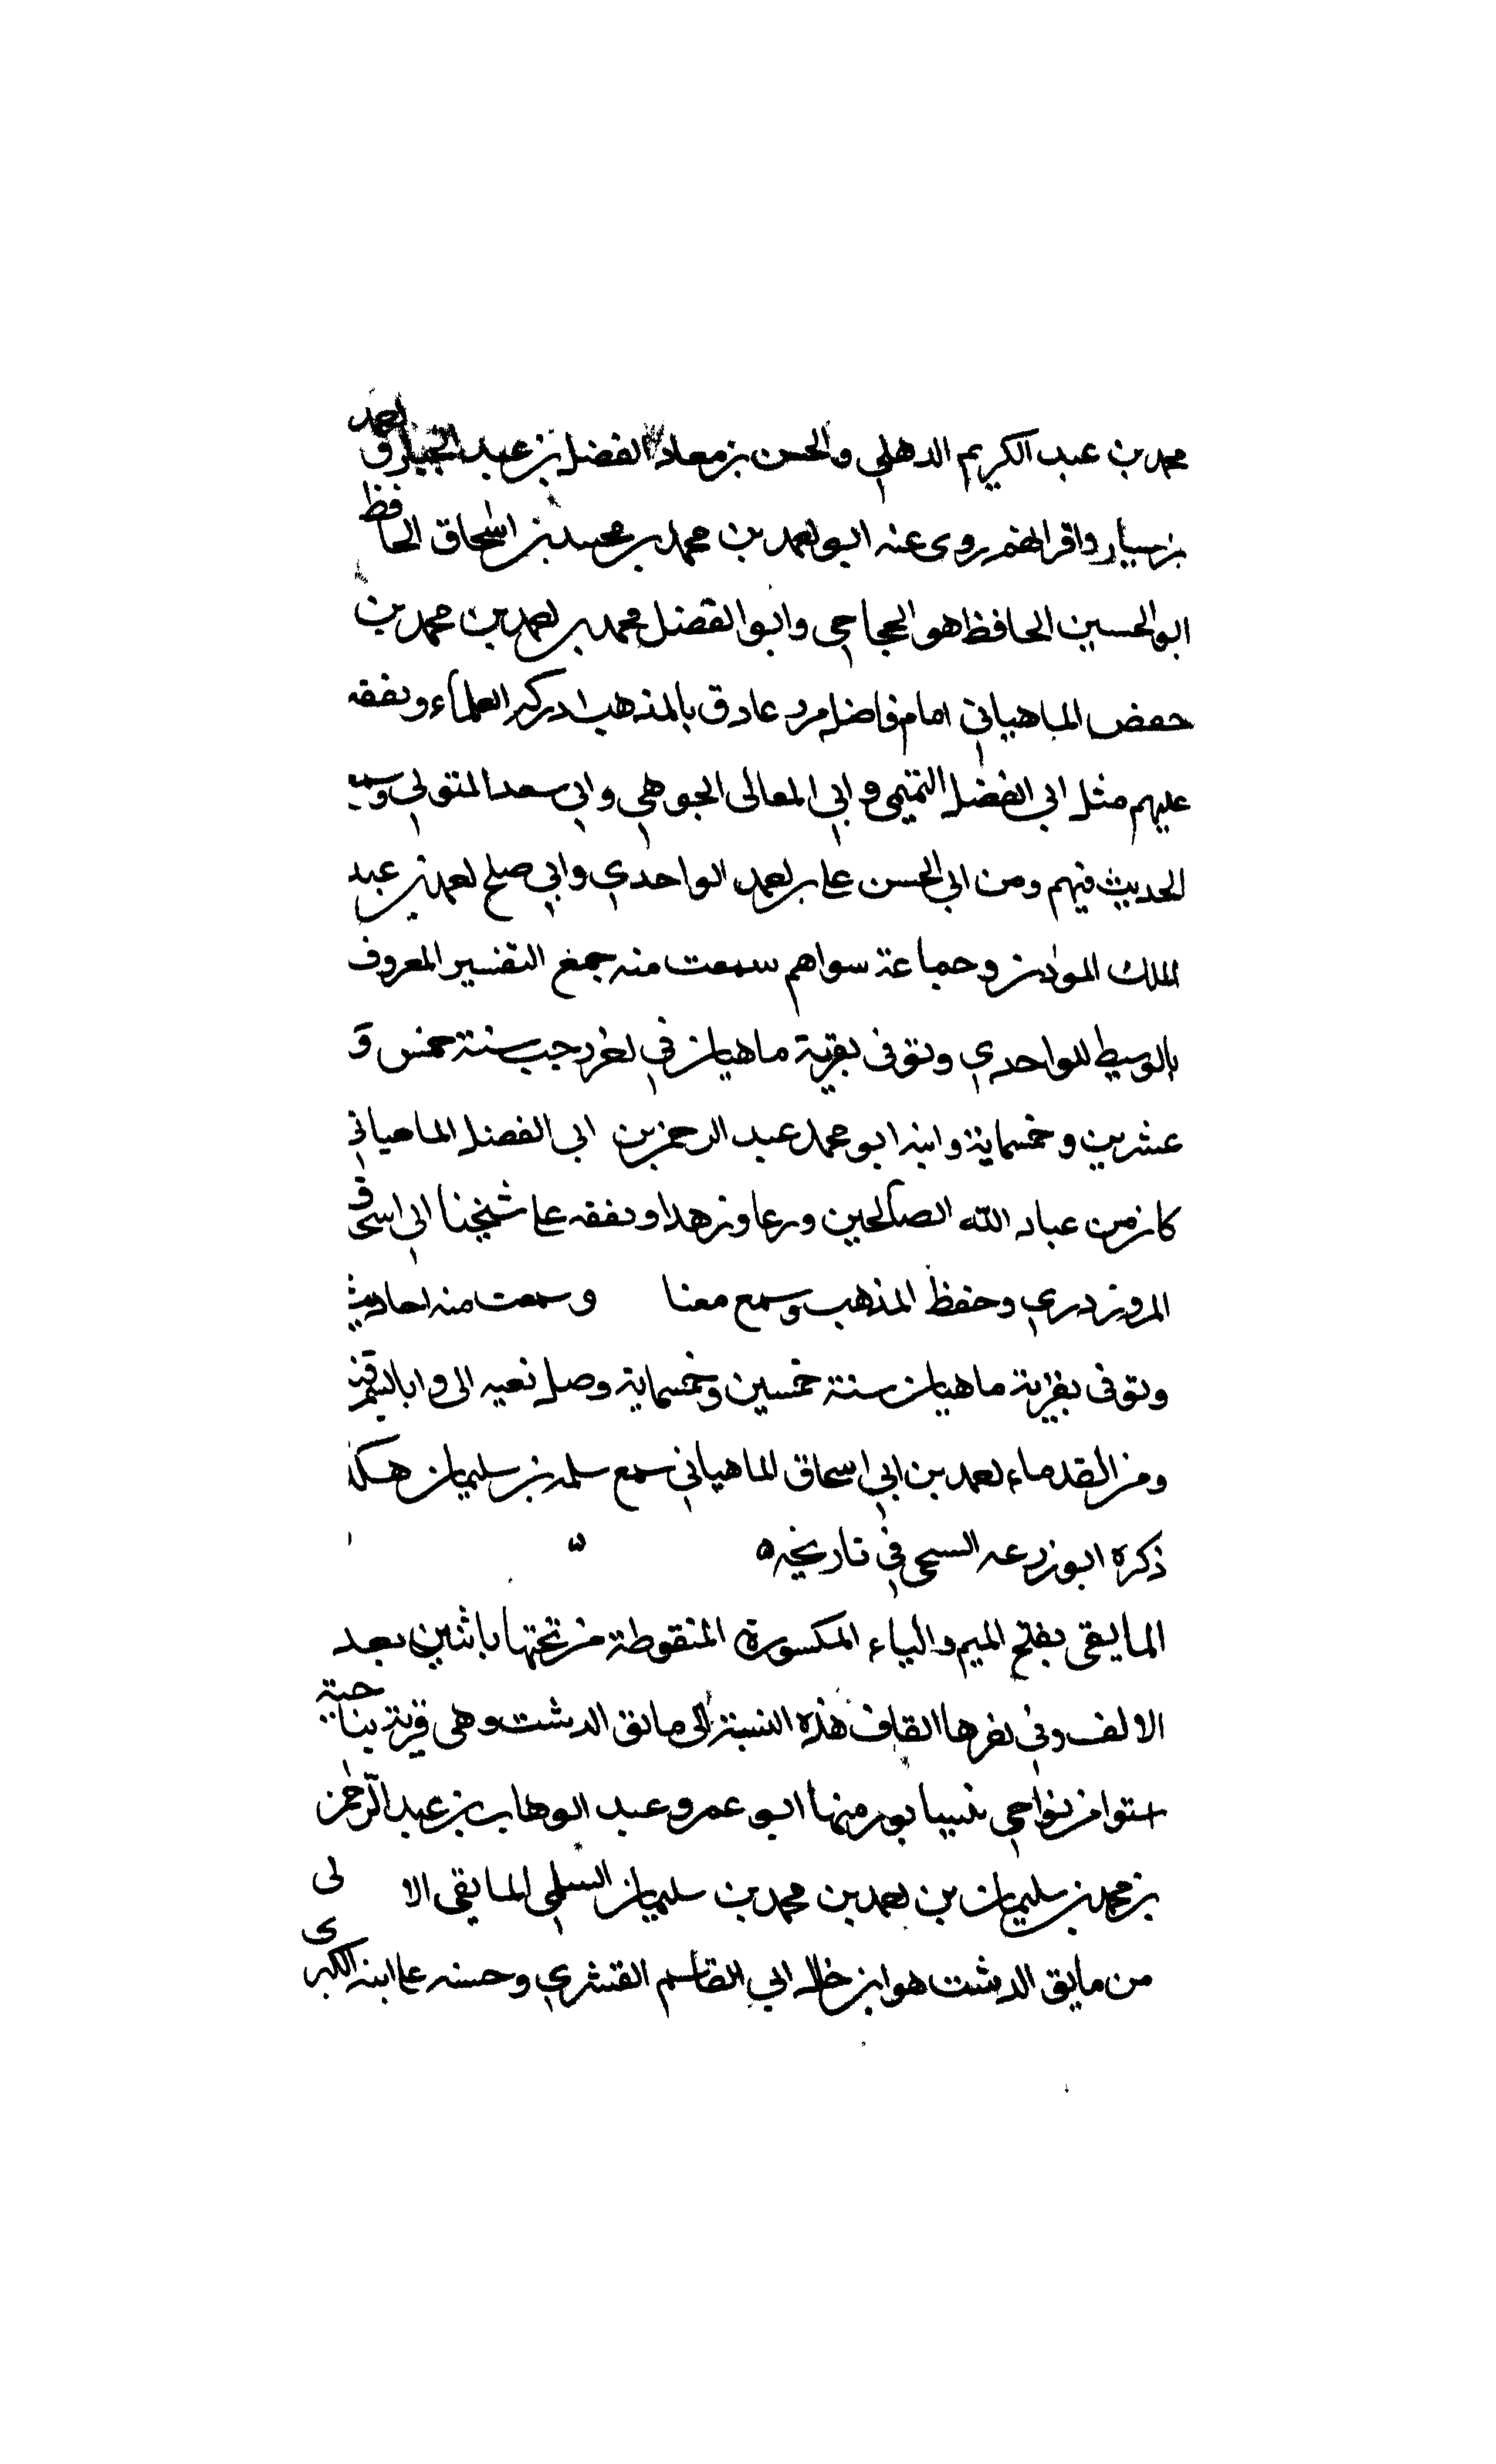 محمد بن عبد الكريم الدهلي والحسن بن معاد الفضل بن عبد الجبار واحمد
بن سيار واقرانهم روى عنه ابو احمد بن محمد بن محمد بن اسحاق الحافظ
ابو الحسين الحافظ هو الحجاجي وابو الفضل محمد بن احمد بن محمد بن
حفض الماهياني امام فاضل مرد عادق بالمذهب ادرك العلماء وتفقه
عليهم مثل ابي الفضل التميمي و ابي المعالى الجوهي وابي سعد المتولي وسمع
الحديث فيهم ومن ابي الحسن على بن احمد الواحدي وابي صلح احمد بن عبد
الملك الموذن وجماعة سواهم سمعت منه جمع التفسير المعروف
بالوسيط للواحدي وتوفى بقرية ماهيان في اخر رجب سنة خمس و
عشرين وخمسماية وابنه ابو محمد عبد الرحمن بن ابى الفضل الماهياني
كان من عباد الله الصالحين ورعا وزهدا وتفقه على شيخنا ابي اسحق
المروزدري وحفظ المذهب وسمع معنا وسمعت منه احاديث
وتوفى بقرية ماهيان سنة خمسين وخمسماية وصل نعيه الى وانا بسمرقند
ومن القدماء احمد بن ابي اسحاق الماهياني سمع سلمه بن سليمان هكذا
ذكره ابو زرعه السنجي في تاريخه ه
المايقى بفتح الميم والياء المكسورة المنقوطة من تحتها باثنين بعد
الالف وفي اخرها القاف هذه النسبة الى مايق الدشت وهى قرية بناحية
استوا من نواحي نيسابور منها ابو عمرو عبد الوهاب بن عبد الرحمن
بن محمد بن سليمان بن احمد بن محمد بن سليمان السلمي المايقى الا لى
من مايق الدشت هو ابن خاله ابي القاسم القشري وحسنه على ابنه الكبرى